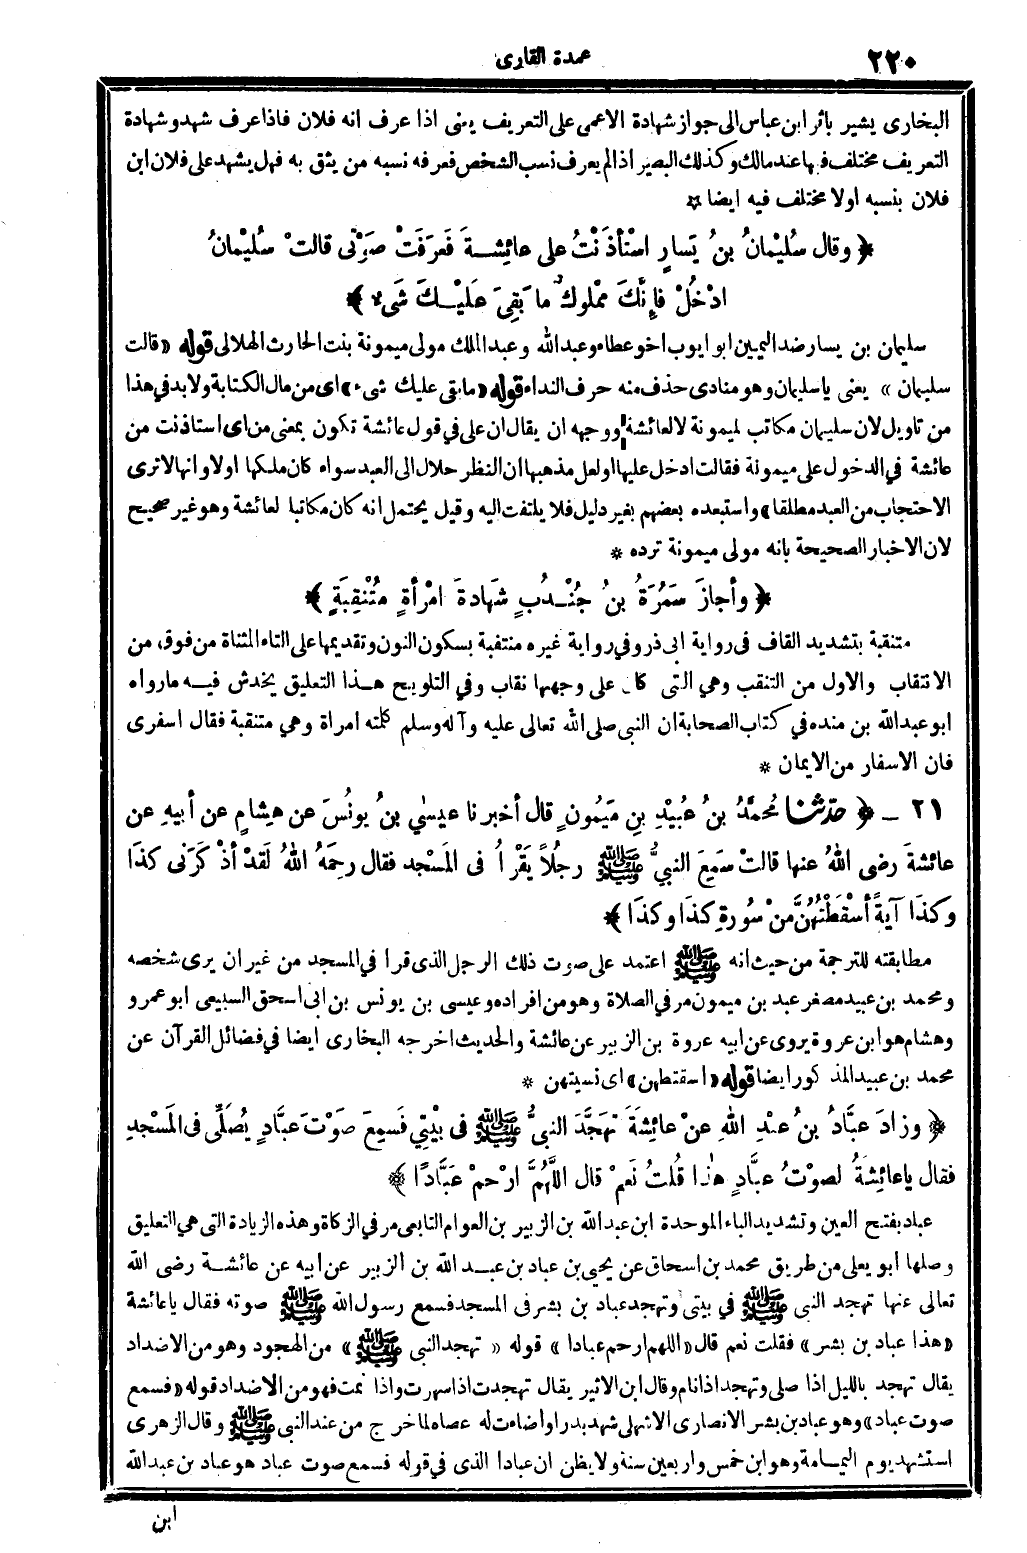 ٢٢٠
عمدة القارى
البخارى يشير باثر ابن عباس الى جواز شهادة الاعمى على التعريف يعنى اذا عرف انه فلان فاذا عرف شهد وشهادة
التعريف مختلف فيها عند مالك وكذلك البصير اذا لم يعرف نسب الشخص فعرفه نسبه من يثق به فهل يشهد على فلان ابن
فلان بنسبه او لا مختلف فيه ايضا ✩
﴿ وقال سُلَيْمانُ بنُ يَسارٍ اسْتأذَنْتُ على عائِشةَ فَعرَفَتْ صَوْتى قالتْ سُلَيْمانُ
ادْخُلْ فإنَّكَ مَمْلوكٌ ما بَقِىَ عَلَيْكَ شَىْءٌ ﴾
سليمان بن يسار ضد اليمين ابو ايوب اخو عطاء وعبدالله وعبد الملك مولى ميمونة بنت الحارث الهلالى قوله «قالت
سليمان» يعنى ياسليمان وهو منادى حذف منه حرف النداء قوله «ما بقى عليك شىء» اى من مال الكتابة ولابد فى هذا
من تاويل لان سليمان مكاتب لميمونة لا لعائشة ووجهه ان يقال ان على فى قول عائشة تكون بمعنى من اى استاذنت من
عائشة فى الدخول على ميمونة فقالت ادخل عليها او لعل مذهبها ان النظر حلال الى العبد سواء كان ملكها اولا وانها لاترى
الاحتجاب من العبد مطلقا» واستبعده بعضهم بغير دليل فلا يلتفت اليه وقيل يحتمل انه كان مكاتبا لعائشة وهو غير صحيح
لان الاخبار الصحيحة بانه مولى ميمونة ترده *
﴿ وأجازَ سَمُرَةُ بنُ جُنْدُبٍ شَهادَةَ امْرأةٍ مُتْنَقِبَةٍ ﴾
متنقبة بتشديد القاف فى رواية ابى ذر وفى رواية غيره منتقبة بسكون النون وتقديمها على التاء المثناة من فوق من
الانتقاب والاول من التنقب وهى التى كان على وجهها نقاب وفى التلويح هذا التعليق يخدش فيه مارواه
ابو عبدالله بن منده فى كتاب الصحابة ان النبى صلى الله تعالى عليه وآله وسلم كلمته امراة وهى متنقبة فقال اسفرى
فان الاسفار من الايمان *
٢١ – ﴿ حدثنا مُحمَّدُ بنُ عُبَيْدِ بنِ مَيْمُونٍ قال أخبرنا عيسٰى بنُ يونُسَ عن هِشامٍ عن أبيهِ عن
عائشةَ رضى اللهُ عنها قالتْ سَمِعَ النبىُّ ﷺ رجُلاً يَقْرأُ فى المَسْجد فقال رحِمَهُ اللهُ لَقدْ أذْكَرَنى كذَا
وكذَا آيةً أسْقَطْتُهُنَّ منْ سُورةِ كذَا وكذَا ﴾
مطابقته للترجمة من حيث انه ﷺ اعتمد على صوت ذلك الرجل الذى قرا فى المسجد من غير ان يرى شخصه
ومحمد بن عبيد مصغر عبد بن ميمون مر فى الصلاة وهو من افراده وعيسى بن يونس بن ابى اسحق السبيعى ابو عمرو
وهشام هو ابن عروة يروى عن ابيه عروة بن الزبير عن عائشة والحديث اخرجه البخارى ايضا فى فضائل القرآن عن
محمد بن عبيد المذكور ايضا قوله «اسقتطهن» اى نسيتهن *
﴿ وزادَ عبَّادُ بنُ عبْدِ اللهِ عنْ عائِشَةَ تَهجَّدَ النبىُّ ﷺ فى بيْتِى فَسمِعَ صوْتَ عبَّادٍ يُصلِّى فى المَسْجدِ
فقال ياعائِشةُ لصوْتُ عبَّادٍ هٰذا قُلتُ نَعمْ قال اللَّهُمَّ ارْحمْ عَبَّادًا ﴾
عباد بفتح العين وتشديد الباء الموحدة ابن عبدالله بن الزبير بن العوام التابعى مر فى الزكاة وهذه الزيادة التى هى التعليق
وصلها أبو يعلى من طريق محمد بن اسحاق عن يحيى بن عباد بن عبد الله بن الزبير عن ابيه عن عائشة رضى الله
تعالى عنها تهجد النبى ﷺ فى بيتى وتهجد عباد بن بشر فى المسجد فسمع رسول الله ﷺ صوته فقال ياعائشة
«هذا عباد بن بشر» فقلت نعم قال «اللهم ارحم عبادا» قوله «تهجد النبى ﷺ» من الهجود وهو من الاضداد
يقال تهجد بالليل اذا صلى وتهجد اذا نام وقال ابن الاثير يقال تهجدت اذا سهرت واذا نمت فهو من الاضداد قوله «فسمع
صوت عباد» وهو عباد بن بشر الانصارى الاشهلى شهد بدرا واضاءت له عصاه لما خرج من عند النبى ﷺ وقال الزهرى
استشهد يوم اليمامة وهو ابن خمس واربعين سنة ولا يظن ان عبادا الذى فى قوله فسمع صوت عباد هو عباد بن عبدالله
ابن